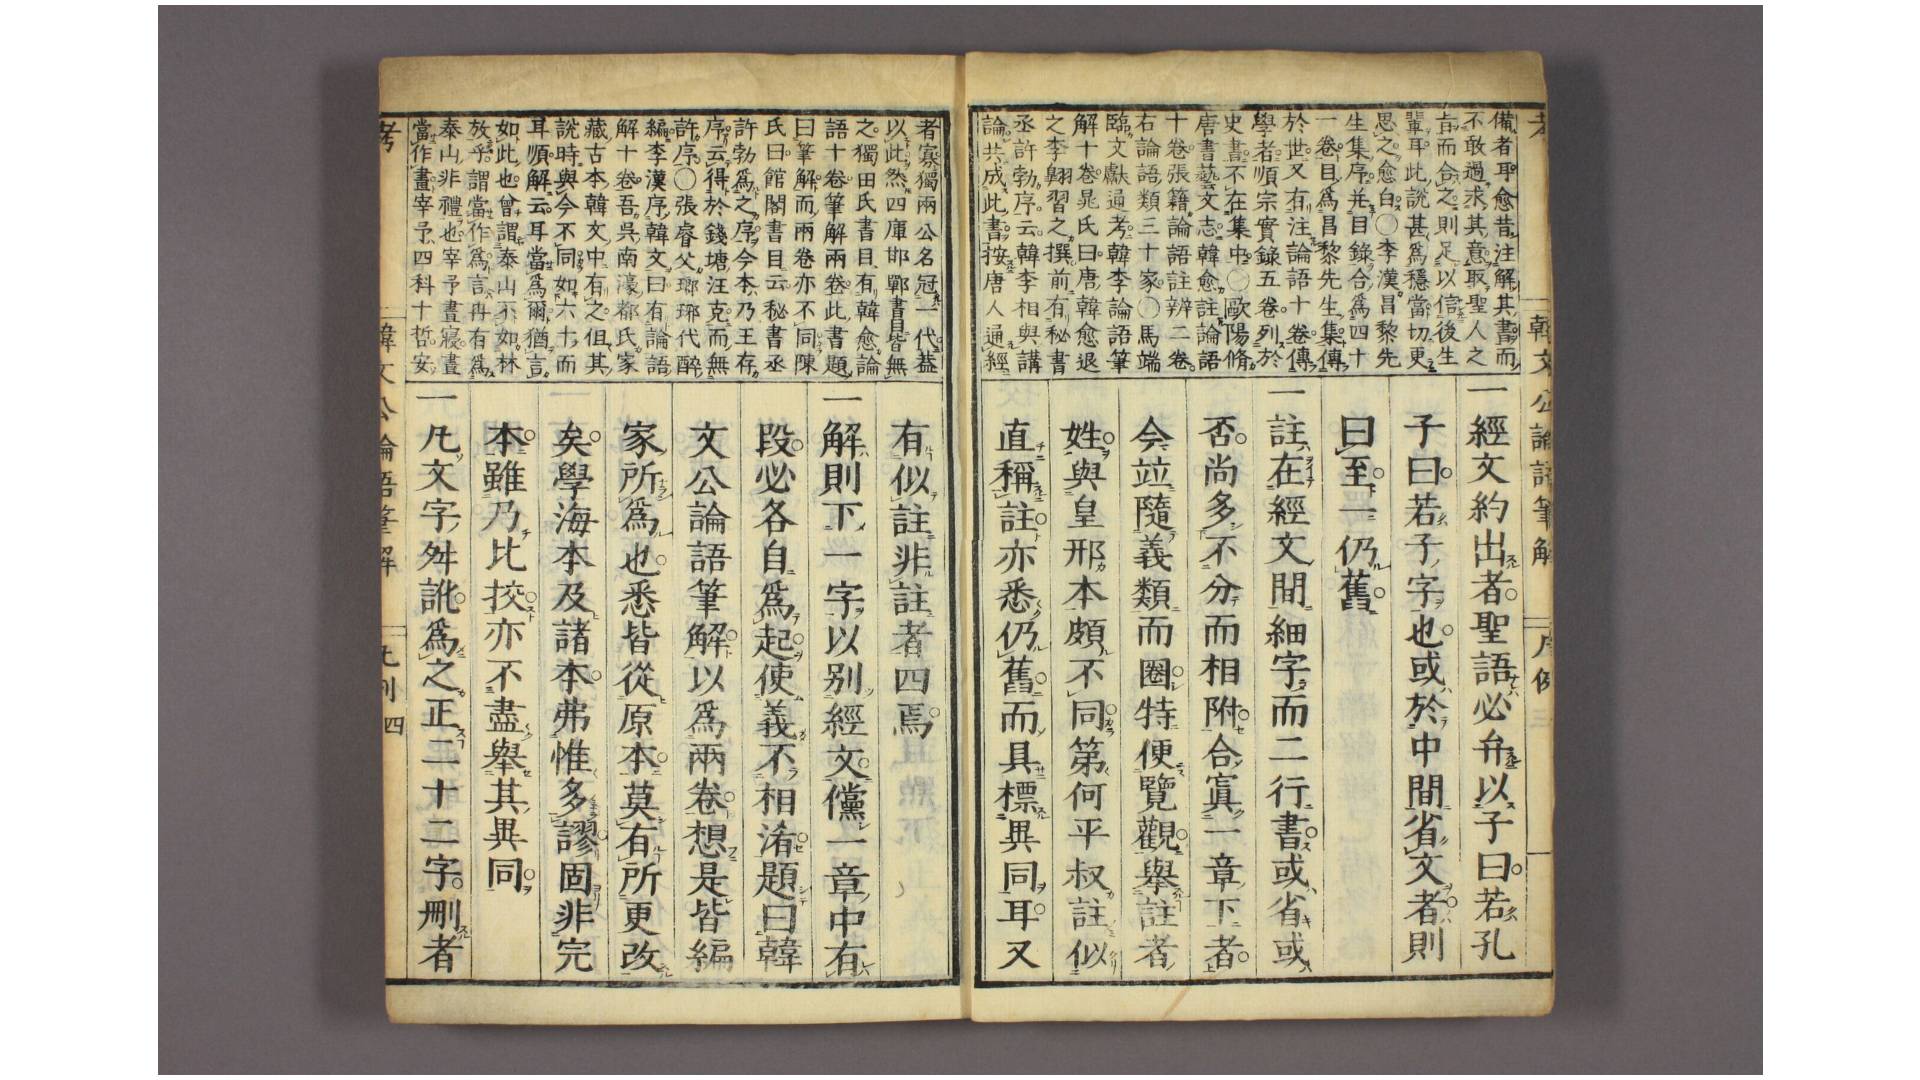 備者耳愈昔注解其書而
不敢過求其意取聖人之
旨而合之則足以信後生
輩耳此說甚爲穩當切更
思之愈白〇李漢昌黎先
生集序并目錄合爲四十
一卷目爲昌黎先生集傳
於世又有注論語十卷傳
學者順宗實錄五卷列於
史書不在集中〇歐陽脩
唐書藝文志韓愈註論語
十卷張籍論語註辨二卷
右論語類三十家〇馬端
臨文獻通考韓李論語筆
解十卷晁氏曰唐韓愈退
之李翺習之撰前有秘書
丞許勃序云韓李相與講
論共成此書按唐人通經
一經文約出者聖語必弁以子曰若孔
子曰若子字也或於中間省文者則
曰至一仍舊
一註在經文間細字而二行書或省或
否尚多不分而相附合寘一章下者
今竝隨義類而圈特便覽觀舉註者
姓與皇邢本頗不同第何平叔註似
直稱註亦悉仍舊而具標異同耳又
韓文公論語筆解
凡例 三
者寡獨兩公名冠一代葢
以此然四庫邯鄲書目皆無
之獨田氏書目有韓愈論
語十卷筆解兩卷此書題
曰筆解而兩卷亦不同陳
氏曰館閣書目云秘書丞
許勃爲之序今本乃王存
序云得於錢塘汪克而無
許序〇張睿父瑯琊代醉
編李漢序韓文曰有論語
解十卷吾吳南濠都氏家
藏古本韓文中有之但其
說時與今不同如六十而
耳順解云耳當爲爾猶言
如此也曾謂泰山不如林
放乎謂當作爲言冉有爲
泰山非禮也宰予晝寢晝
當作畫宰予四科十哲安
有似註非註者四焉
一解則下一字以別經文儻一章中有
段必各自爲起使義不相淆題曰韓
文公論語筆解以爲兩卷想是皆編
家所爲也悉皆從原本莫有所更改
矣學海本及諸本弗惟多謬固非完
本雖乃比挍亦不盡舉其異同
一凡文字舛訛爲之正二十二字刪者
考
韓文公論語筆解
凡例 四